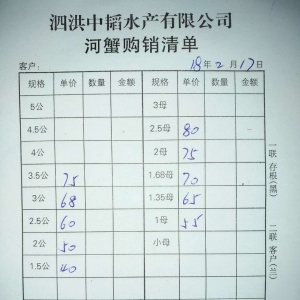 泗洪中韬水产有限公司
河蟹购销清单
客户: 18年2月17日
规格 单价 数量 金额 规格 单价 数量 金额
5公 3母
4.5公 2.5母 80
4公 2母 75
3.5公 75 1.68母 70
3公 68 1.35母 65
2.5公 60 1母 55
2公 50 小母
1.5公 40
一联 存根(黑)
二联 客户(兰)